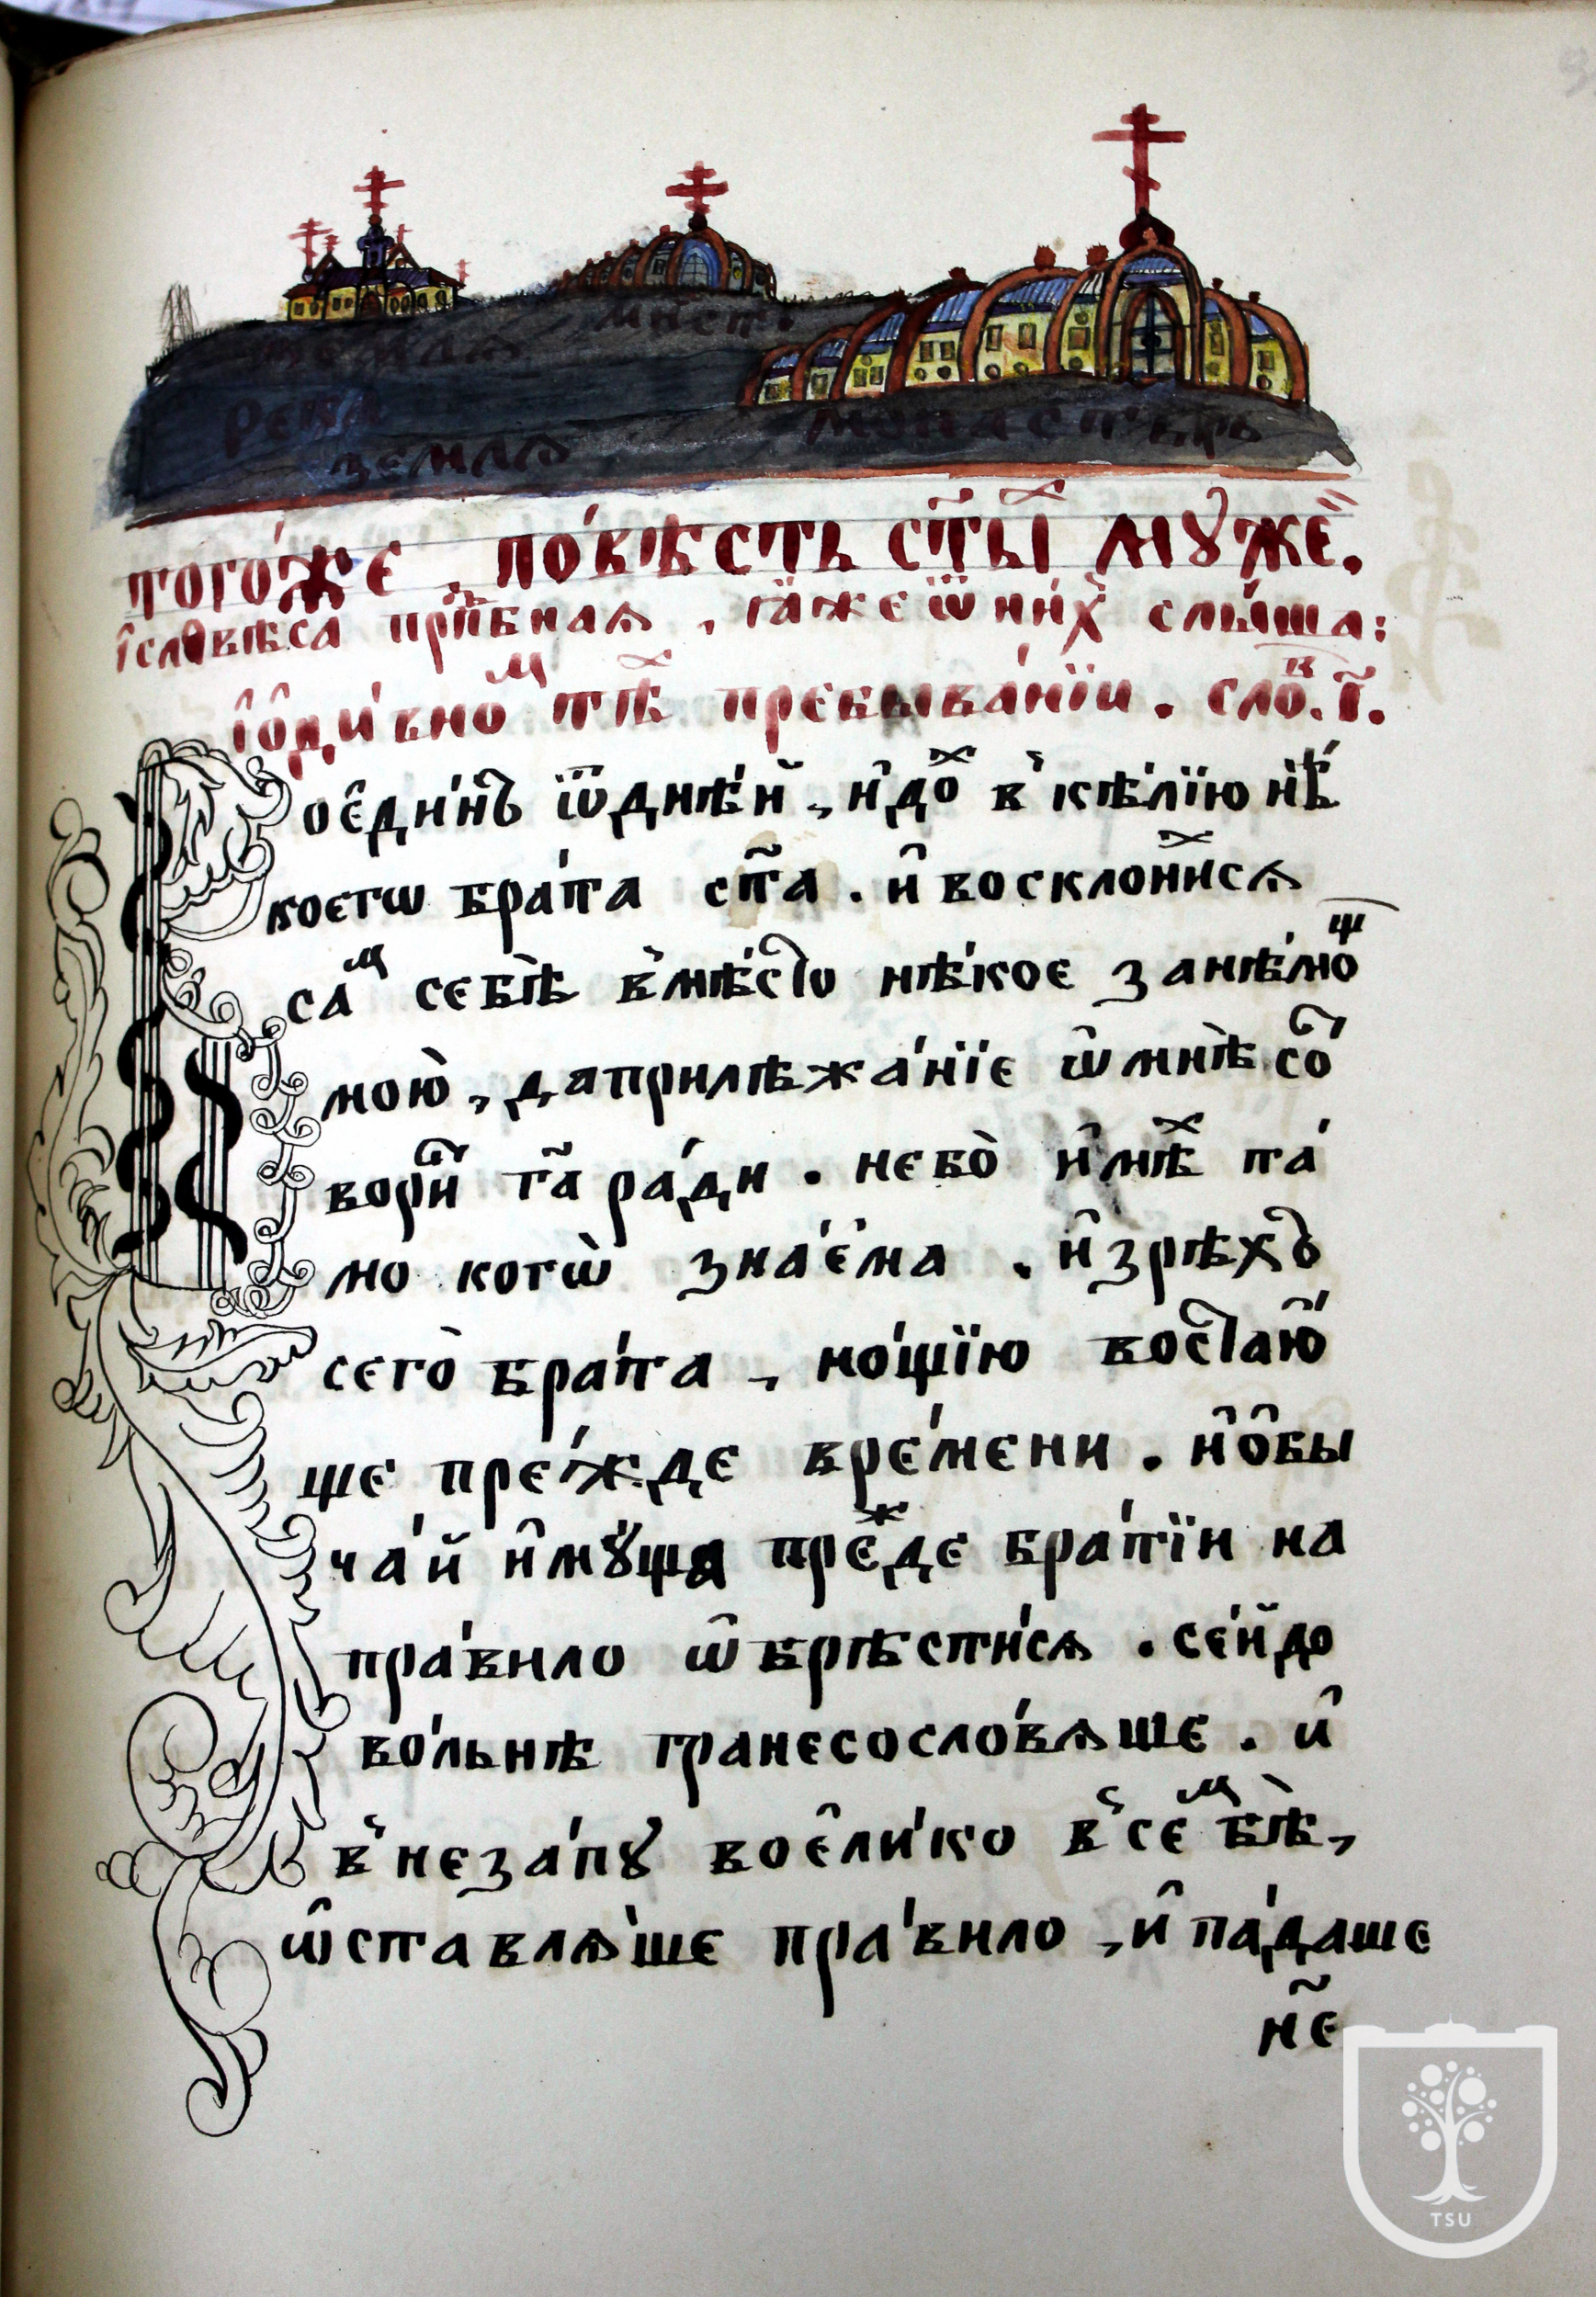 мѣсто
земля
река
монастырь
земля
тогѡ́же , по́вѣсть ст҃ы̑ му́жей .
і҆словеса̀ прп҃бная , ꙗ҆̀же ѿ ни́хъ слы́ша :
і҆ѻ҆ди́вномъ тѣ́хъ пребыва́нїи . сло́в . г҃ .
Воє҆ди́нъ ѿ дне́й , и҆до́х въ ке́лїю нѣ́
коегѡ бра́та ст҃а . и҆ восклони́хся
са́м себѣ̀ вмѣ́сто нѣ́кое за нѣ́мощ
мою̀ , да прилѣжа́нїе ѡ҆ мнѣ̀ сот
вори́т гд҃а ра́ди . не бо̀ и҆мѣ́х та́
мо когѡ̀ зна́єма . и҆ зрѣ́хъ
сего̀ бра́та , но́щїю востаю́
ще пре́жде вре́мени . и҆ ѻ҆бы
ча́й и҆му́ща пре́жде бра́тїи на
пра́вило ѡ҆брѣсти́ся . се́й до
во́льнѣ гранесосло́вяше . и҆
внеза́пу воє҆ли́ко в се́м бѣ̀ ,
ѡ҆ставля́ше пра́вило , и҆ па́даше
не
TSU